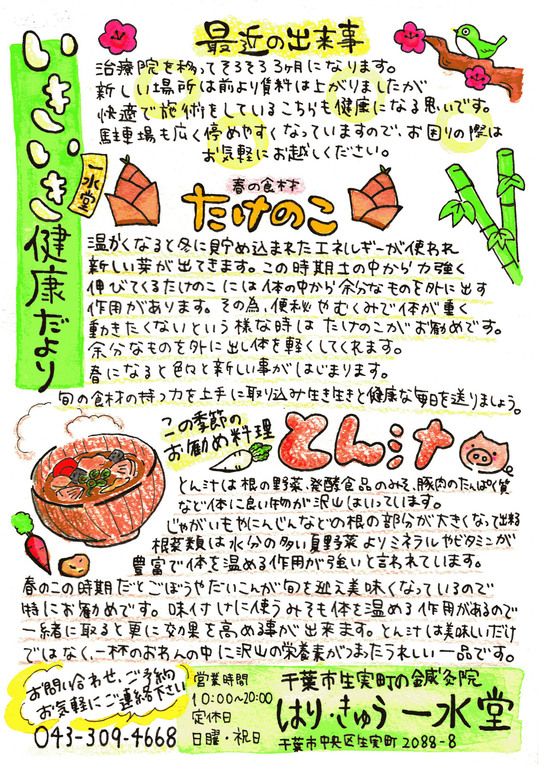 いきいき健康だより
一水堂
最近の出来事
治療院を移ってそろそろ3ヶ月になります。
新しい場所は前より賃料は上がりましたが
快適で施術をしているこちらも健康になる思いです。
駐車場も広く停めやすくなっていますので、お困りの際は
お気軽にお越しください。
春の食材
たけのこ
温かくなると冬に貯め込まれたエネルギーが使われ
新しい芽が出てきます。この時期土の中から力強く
伸びてくるたけのこには体の中から余分なものを外に出す
作用があります。その為、便秘やむくみで体が重く
動きたくないという様な時はたけのこがお勧めです。
余分なものを外に出し体を軽くしてくれます。
春になると色々と新しい事がはじまります。
旬の食材の持つ力を上手に取り込み生き生きと健康な毎日を送りましょう。
この季節の
お勧め料理
とん汁
とん汁は根の野菜、発酵食品のみそ、豚肉のたんぱく質
など体に良い物が沢山はいっています。
じゃがいもやにんじんなどの根の部分が大きくなって出来る
根菜類は水分の多い夏野菜よりミネラルやビタミンが
豊富で体を温める作用が強いと言われています。
春のこの時期だとごぼうやだいこんが旬を迎え美味くなっているので
特にお勧めです。味付けに使うみそも体を温める作用があるので
一緒に取ると更に効果を高める事が出来ます。とん汁は美味しいだけ
ではなく、一杯のおわんの中に沢山の栄養素がつまったうれしい一品です。
お問い合わせ、ご予約
お気軽にご連絡下さい
043-309-4668
営業時間
10:00~20:00
定休日
日曜・祝日
千葉市生実町の鍼灸院
はり・きゅう 一水堂
千葉市中央区生実町2088-8